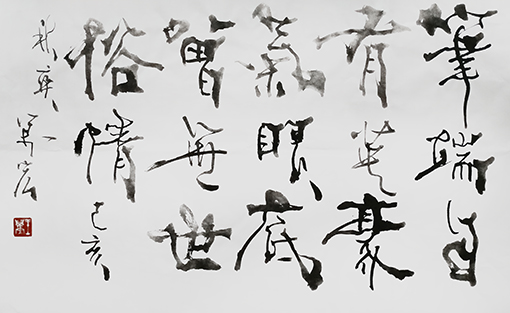 筆端自
有英豪
氣眼底
曾無世
俗情己亥